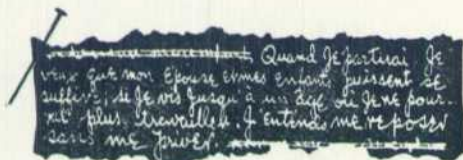 Quand Je partirai Je
veux que mon Epouse et mes enfants puissent se
suffire; si Je vis Jusqu'à un âge où Je ne pour-
rai plus travailler. J'entends me reposer
sans me priver.